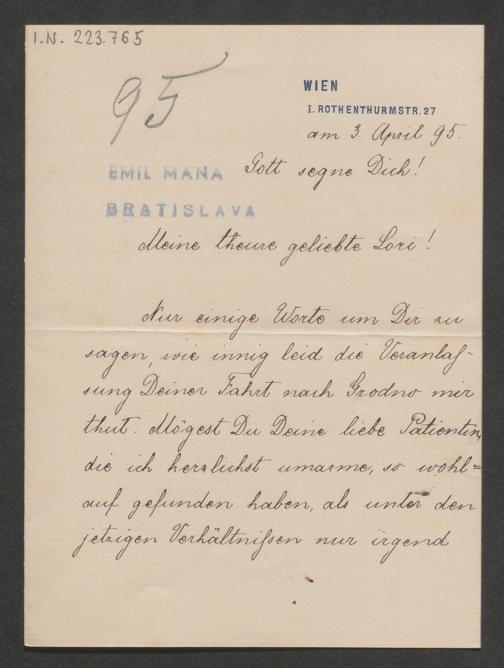 I.N. 223.765
95
WIEN
I. ROTHENTHURMSTR. 27
am 3. April 95.
EMIL MANA
BRATISLAVA
Gott segne Dich!
Meine theure geliebte Lori!
Nur einige Worte um Dir zu
sagen, wie innig leid die Veranlaſ-
sung Deiner Fahrt nach Grodno mir
thut. Mögest Du Deine liebe Patientin,
die ich herzlichst umarme, so wohl=
auf gefunden haben, als unter den
jetzigen Verhältniſsen nur irgend